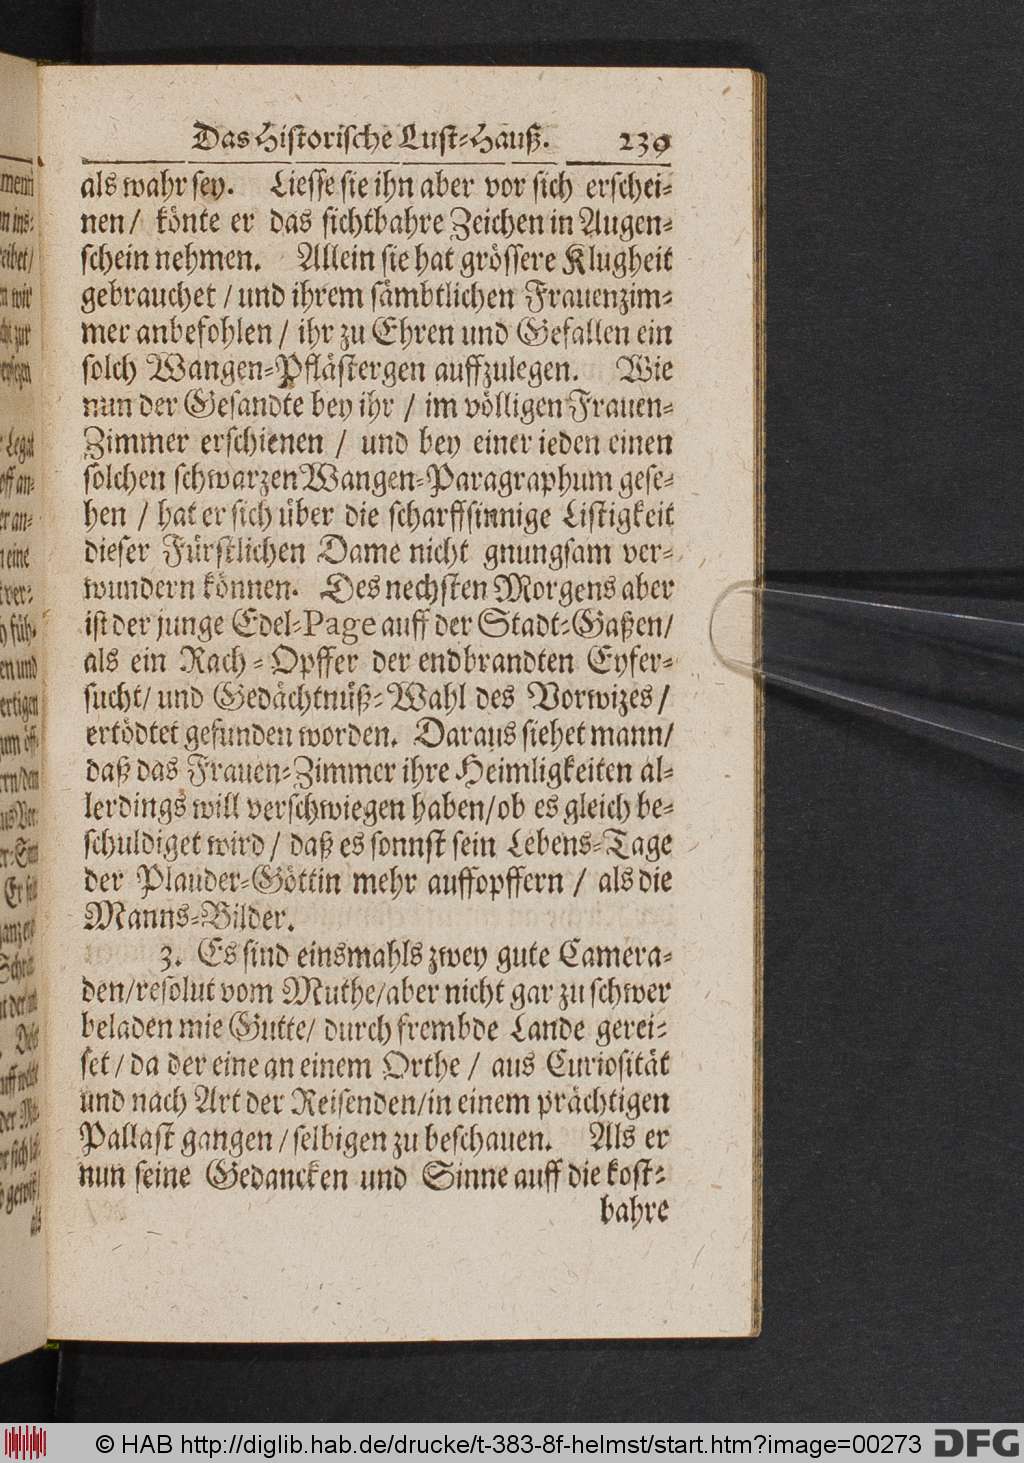 Das Historische Lust-Hauß. 239
als wahr sey. Liesse sie ihn aber vor sich erschei-
nen / könte er das sichtbahre Zeichen in Augen-
schein nehmen. Allein sie hat grössere Klugheit
gebrauchet / und ihrem sämbtlichen Frauenzim-
mer anbefohlen / ihr zu Ehren und Gefallen ein
solch Wangen-Pflästergen auffzulegen. Wie
nun der Gesandte bey ihr / im völligen Frauen-
Zimmer erschienen / und bey einer ieden einen
solchen schwarzen Wangen-Paragraphum gese-
hen / hat er sich über die scharffsinnige Listigkeit
dieser Fürstlichen Dame nicht gnungsam ver-
wundern können. Des nechsten Morgens aber
ist der junge Edel-Page auff der Stadt-Gaßen/
als ein Rach-Opffer der endbrandten Eyfer-
sucht/ und Gedächtnüß-Wahl des Vorwizes /
ertödtet gefunden worden. Daraus siehet mann/
daß das Frauen-Zimmer ihre Heimligkeiten al-
lerdings will verschwiegen haben/ob es gleich be-
schuldiget wird / daß es sonnst sein Lebens-Tage
der Plauder-Göttin mehr auffopffern / als die
Manns-Bilder.
3. Es sind einsmahls zwey gute Camera-
den/resolut vom Muthe/aber nicht gar zu schwer
beladen mie Gutte/ durch frembde Lande gerei-
set / da der eine an einem Orthe / aus Curiosität
und nach Art der Reisenden/in einem prächtigen
Pallast gangen / selbigen zu beschauen. Als er
nun seine Gedancken und Sinne auff die kost-
bahre
© HAB http://diglib.hab.de/drucke/t-383-8f-helmst/start.htm?image=00273 DFG